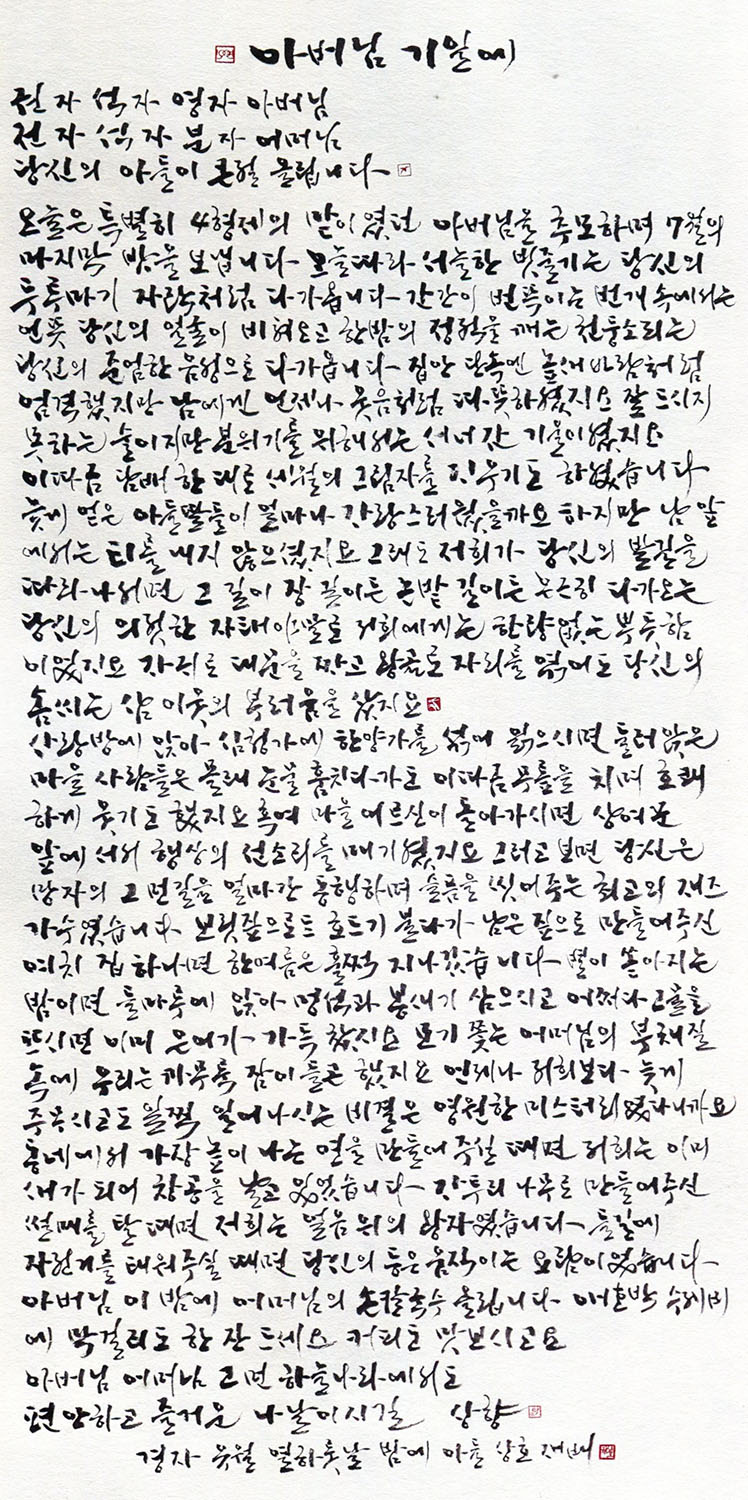 아버님 기일에
전 자 석 자 영 자 아버님
전 자 석 자 분 자 어머님
당신의 아들이 큰절 올립니다
오늘은 특별히 4형제의 맏이였던 아버님을 추모하며 7월의
마지막 밤을 보냅니다 오늘따라 서늘한 빗줄기는 당신의
두루마기 자락처럼 다가옵니다 간간이 번뜩이는 번개 속에서는
언뜻 당신의 얼굴이 비쳐오고 한밤의 정적을 깨는 천둥소리는
당신의 준엄한 음성으로 다가옵니다 집안 단속엔 높새바람처럼
엄격했지만 남에겐 언제나 웃음처럼 따뜻하였지요 잘 드시지
못하는 술이지만 분위기를 위해서는 서너 잔 기울이였지요
이따금 담배 한 대로 세월의 그림자를 피우기도 하였습니다
늦게 얻은 아들딸들이 얼마나 자랑스러웠을까요 하지만 남 앞
에서는 티를 내지 않으셨지요 그래도 저희가 당신의 발길을
따라나서면 그 길이 장 길이든 논밭 길이든 은근히 다가오는
당신의 의젓한 자태야말로 저희에게는 한량없는 뿌듯함
이었지요 자귀로 대문을 짜고 왕골로 자리를 엮어도 당신의
솜씨는 삼 이웃의 부러움을 샀지요
사랑방에 앉아 심청가에 한양가를 섞어 읽으시면 둘러앉은
마을 사람들은 몰래 눈물 훔치다가도 이따금 무릎을 치며 호쾌
하게 웃기도 했지요 혹여 마을 어르신이 돌아가시면 상여꾼
앞에 서서 행상의 선소리를 매기였지요 그러고 보면 당신은
망자의 그 먼 길을 얼마간 동행하며 슬픔을 씻어주는 최고의 재즈
가수였습니다 보릿짚으로 호드기 불다가 남은 짚으로 만들어주신
여치 집 하나면 한여름은 훌쩍 지나갔습니다 별이 쏟아지는
밤이면 들마루에 앉아 멍석과 봉새기 삼으시고 어쩌다 고홀을
뜨시면 이미 은어가 가득 찼지요 모기 쫓는 어머님의 부채질
속에 우리는 까무룩 잠이 들곤 했지요 언제나 저희보다 늦게
주무시고도 일찍 일어나시는 비결은 영원한 미스터리였다니까요
동네에서 가장 높이 나는 연을 만들어 주실 때면 저희는 이미
새가 되어 창공을 날고 있었습니다 자투리 나무로 만들어주신
썰매를 탈 때면 저희는 얼음 위의 왕자였습니다 들길에
자전거를 태워주실 때면 당신의 등은 움직이는 요람이었습니다
아버님 이 밤에 어머님의 손칼국수 올립니다 애호박 수제비
에 막걸리도 한 잔 드세요 커피도 맛보시고요
아버님 어머님 그 먼 하늘나라에서도
편안하고 즐거운 나날이시길 상향
경자 유월 열하룻날 밤에 아들 상호 재배